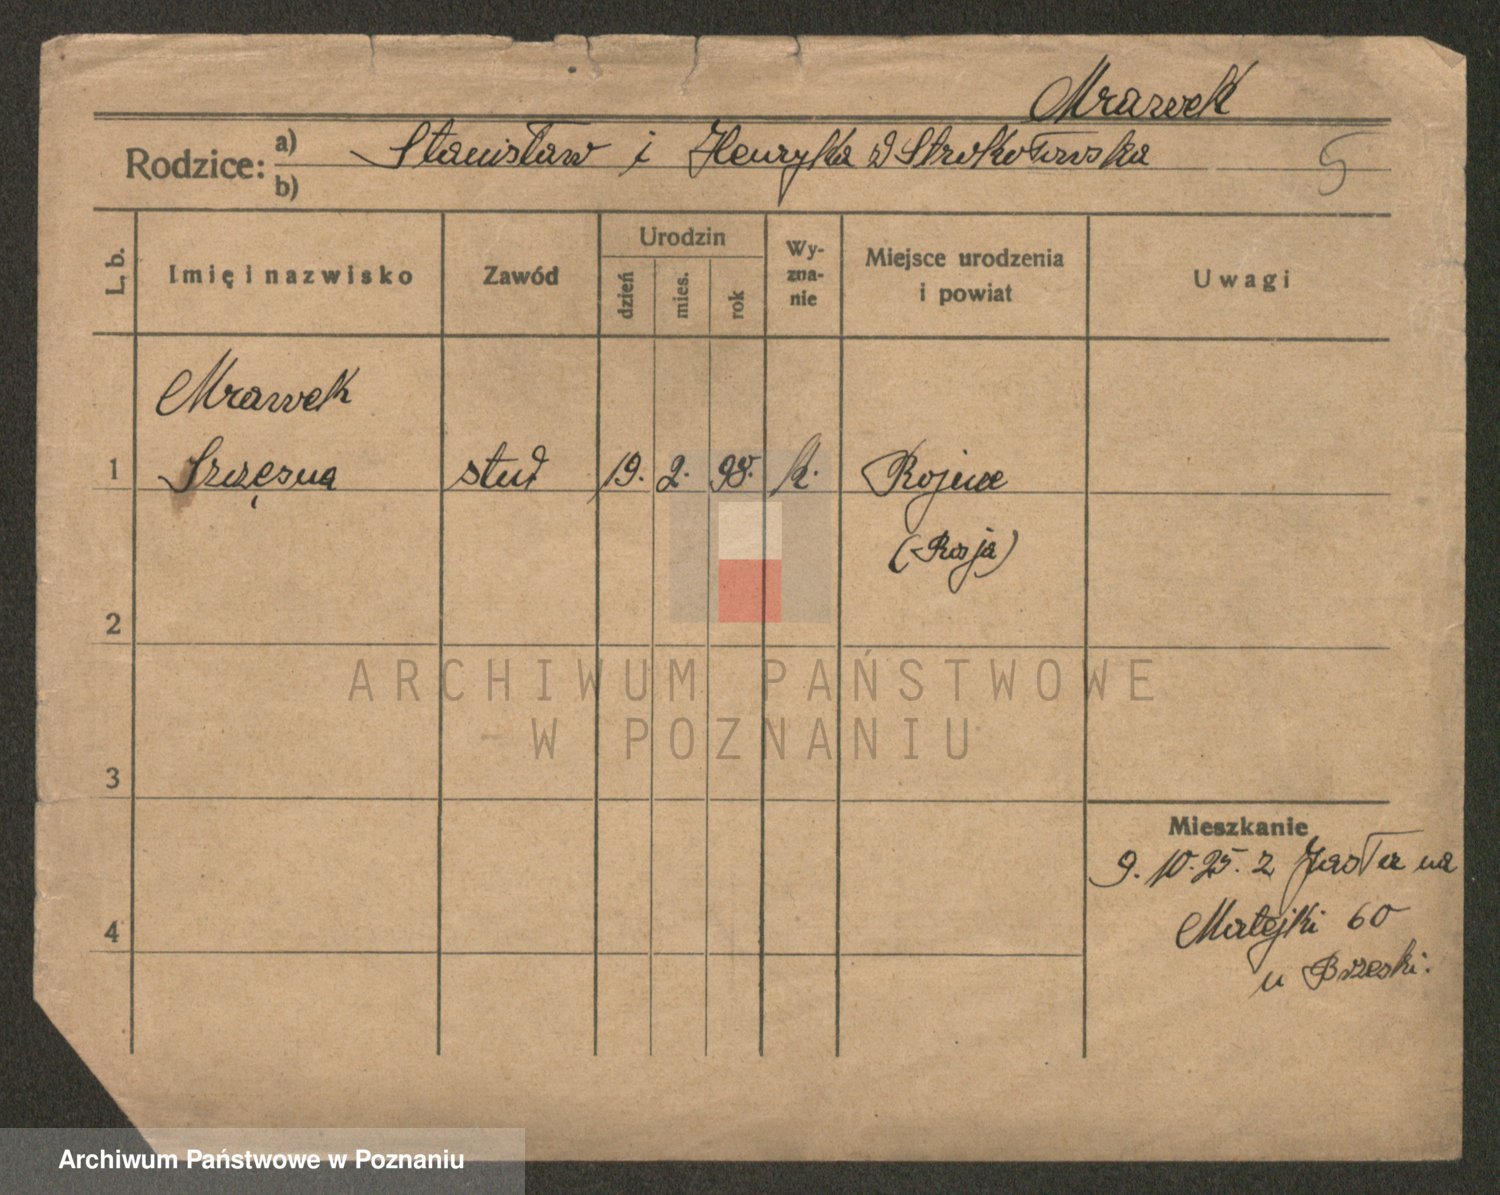 Mrawek
Rodzice: a) Stanisław i Henryka d Strokowska
b)
L. b.
Imię i nazwisko
Zawód
Urodzin
dzień
mies.
rok
Wy-
zna-
nie
Miejsce urodzenia
i powiat
Uwagi
Mrawek
1 Szczęsna stud 19. 2. 98. k.
(Rosja)
2
ARCHIWUM PAŃSTWOWE
W POZNANIU
3
Mieszkanie
9. 10. 25. z Jasła na
4 Matejki 60
u Brzeski.
Archiwum Państwowe w Poznaniu